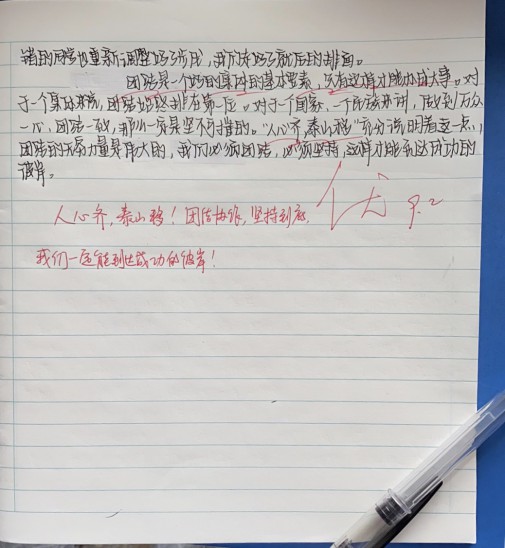 错的同学也重新调整好了步伐，我们走好了最后的排面。
团结是一个好的集体的基本要素，只有这样才能办成大事。对
于一个集体来说，团结始终排在第一位。对于一个国家、一个民族来讲，做到万众
一心，团结一致，那么一定是坚不可摧的。“人心齐，泰山移”充分说明着这一点，
团结的力量是伟大的，我们必须团结，必须坚持，这样才能到达成功的
彼岸。
人心齐，泰山移！团结协作，坚持到底，
优 9.2
我们一定能到达成功的彼岸！